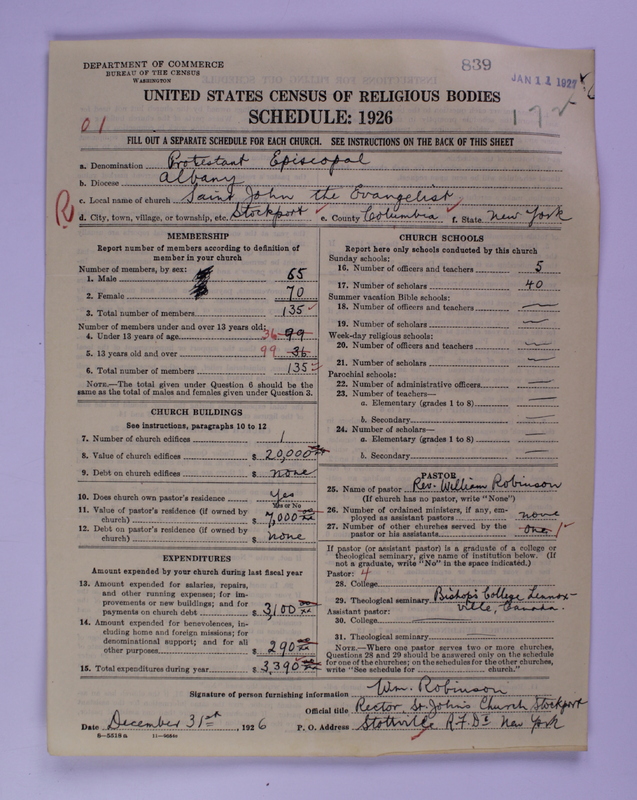 DEPARTMENT OF COMMERCE
BUREAU OF THE CENSUS
WASHINGTON
839
JAN 11 1927
UNITED STATES CENSUS OF RELIGIOUS BODIES
SCHEDULE: 1926
01
FILL OUT A SEPARATE SCHEDULE FOR EACH CHURCH. SEE INSTRUCTIONS ON THE BACK OF THIS SHEET
a. Denomination Protestant Episcopal
b. Diocese Albany
c. Local name of church Saint John the Evangelist
R
d. City, town, village, or township, etc. Stockport e. County Columbia f. State New York
MEMBERSHIP
Report number of members according to definition of
member in your church
Number of members, by sex:
1. Male 65
2. Female 70
3. Total number of members 135
Number of members under and over 13 years old:
4. Under 13 years of age 36 99
5. 13 years old and over 99 36
6. Total number of members 135
NOTE.—The total given under Question 6 should be the
same as the total of males and females given under Question 3.
CHURCH BUILDINGS
See instructions, paragraphs 10 to 12
7. Number of church edifices 1
8. Value of church edifices $ 20,000
9. Debt on church edifices $ none
10. Does church own pastor's residence Yes
Yes or No
11. Value of pastor's residence (if owned by
church) $ 7,000
12. Debt on pastor's residence (if owned by
church) $ none
EXPENDITURES
Amount expended by your church during last fiscal year
13. Amount expended for salaries, repairs,
and other running expenses; for im-
provements or new buildings; and for
payments on church debt $ 3,100
14. Amount expended for benevolences, in-
cluding home and foreign missions; for
denominational support; and for all
other purposes $ 290
15. Total expenditures during year $ 3,390
CHURCH SCHOOLS
Report here only schools conducted by this church
Sunday schools:
16. Number of officers and teachers 5
17. Number of scholars 40
Summer vacation Bible schools:
18. Number of officers and teachers —
19. Number of scholars —
Week-day religious schools:
20. Number of officers and teachers —
21. Number of scholars —
Parochial schools:
22. Number of administrative officers —
23. Number of teachers—
a. Elementary (grades 1 to 8) —
b. Secondary —
24. Number of scholars—
a. Elementary (grades 1 to 8) —
b. Secondary —
PASTOR
25. Name of pastor Rev. William Robinson
(If church has no pastor, write "None")
26. Number of ordained ministers, if any, em-
ployed as assistant pastors none
27. Number of other churches served by the
pastor or his assistants one 1
If pastor (or assistant pastor) is a graduate of a college or
theological seminary, give name of institution below. (If
not a graduate, write "No" in the space indicated.)
Pastor: 4
28. College
29. Theological seminary Bishop's College Lennox-
ville, Canada.
Assistant pastor:
30. College
31. Theological seminary
NOTE.—Where one pastor serves two or more churches,
Questions 28 and 29 should be answered only on the schedule
for one of the churches; on the schedules for the other churches,
write "See schedule for church."
Signature of person furnishing information Wm. Robinson
Official title Rector, St John's Church Stockport
Date December 31st, 1926 P. O. Address Stottville R.F.D. New York
8-5518 a